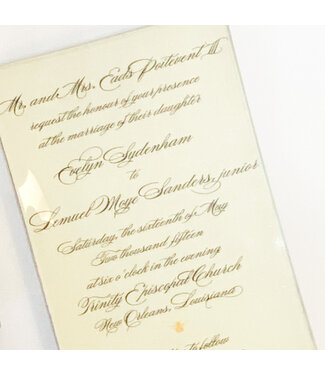 Mr. and Mrs. Eads Poitevent, III
request the honour of your presence
at the marriage of their daughter
Evelyn Sydenham
to
Lemuel Moye Sanders, junior
Saturday, the sixteenth of May
Two thousand fifteen
at six o'clock in the evening
Trinity Episcopal Church
New Orleans, Louisiana
to follow